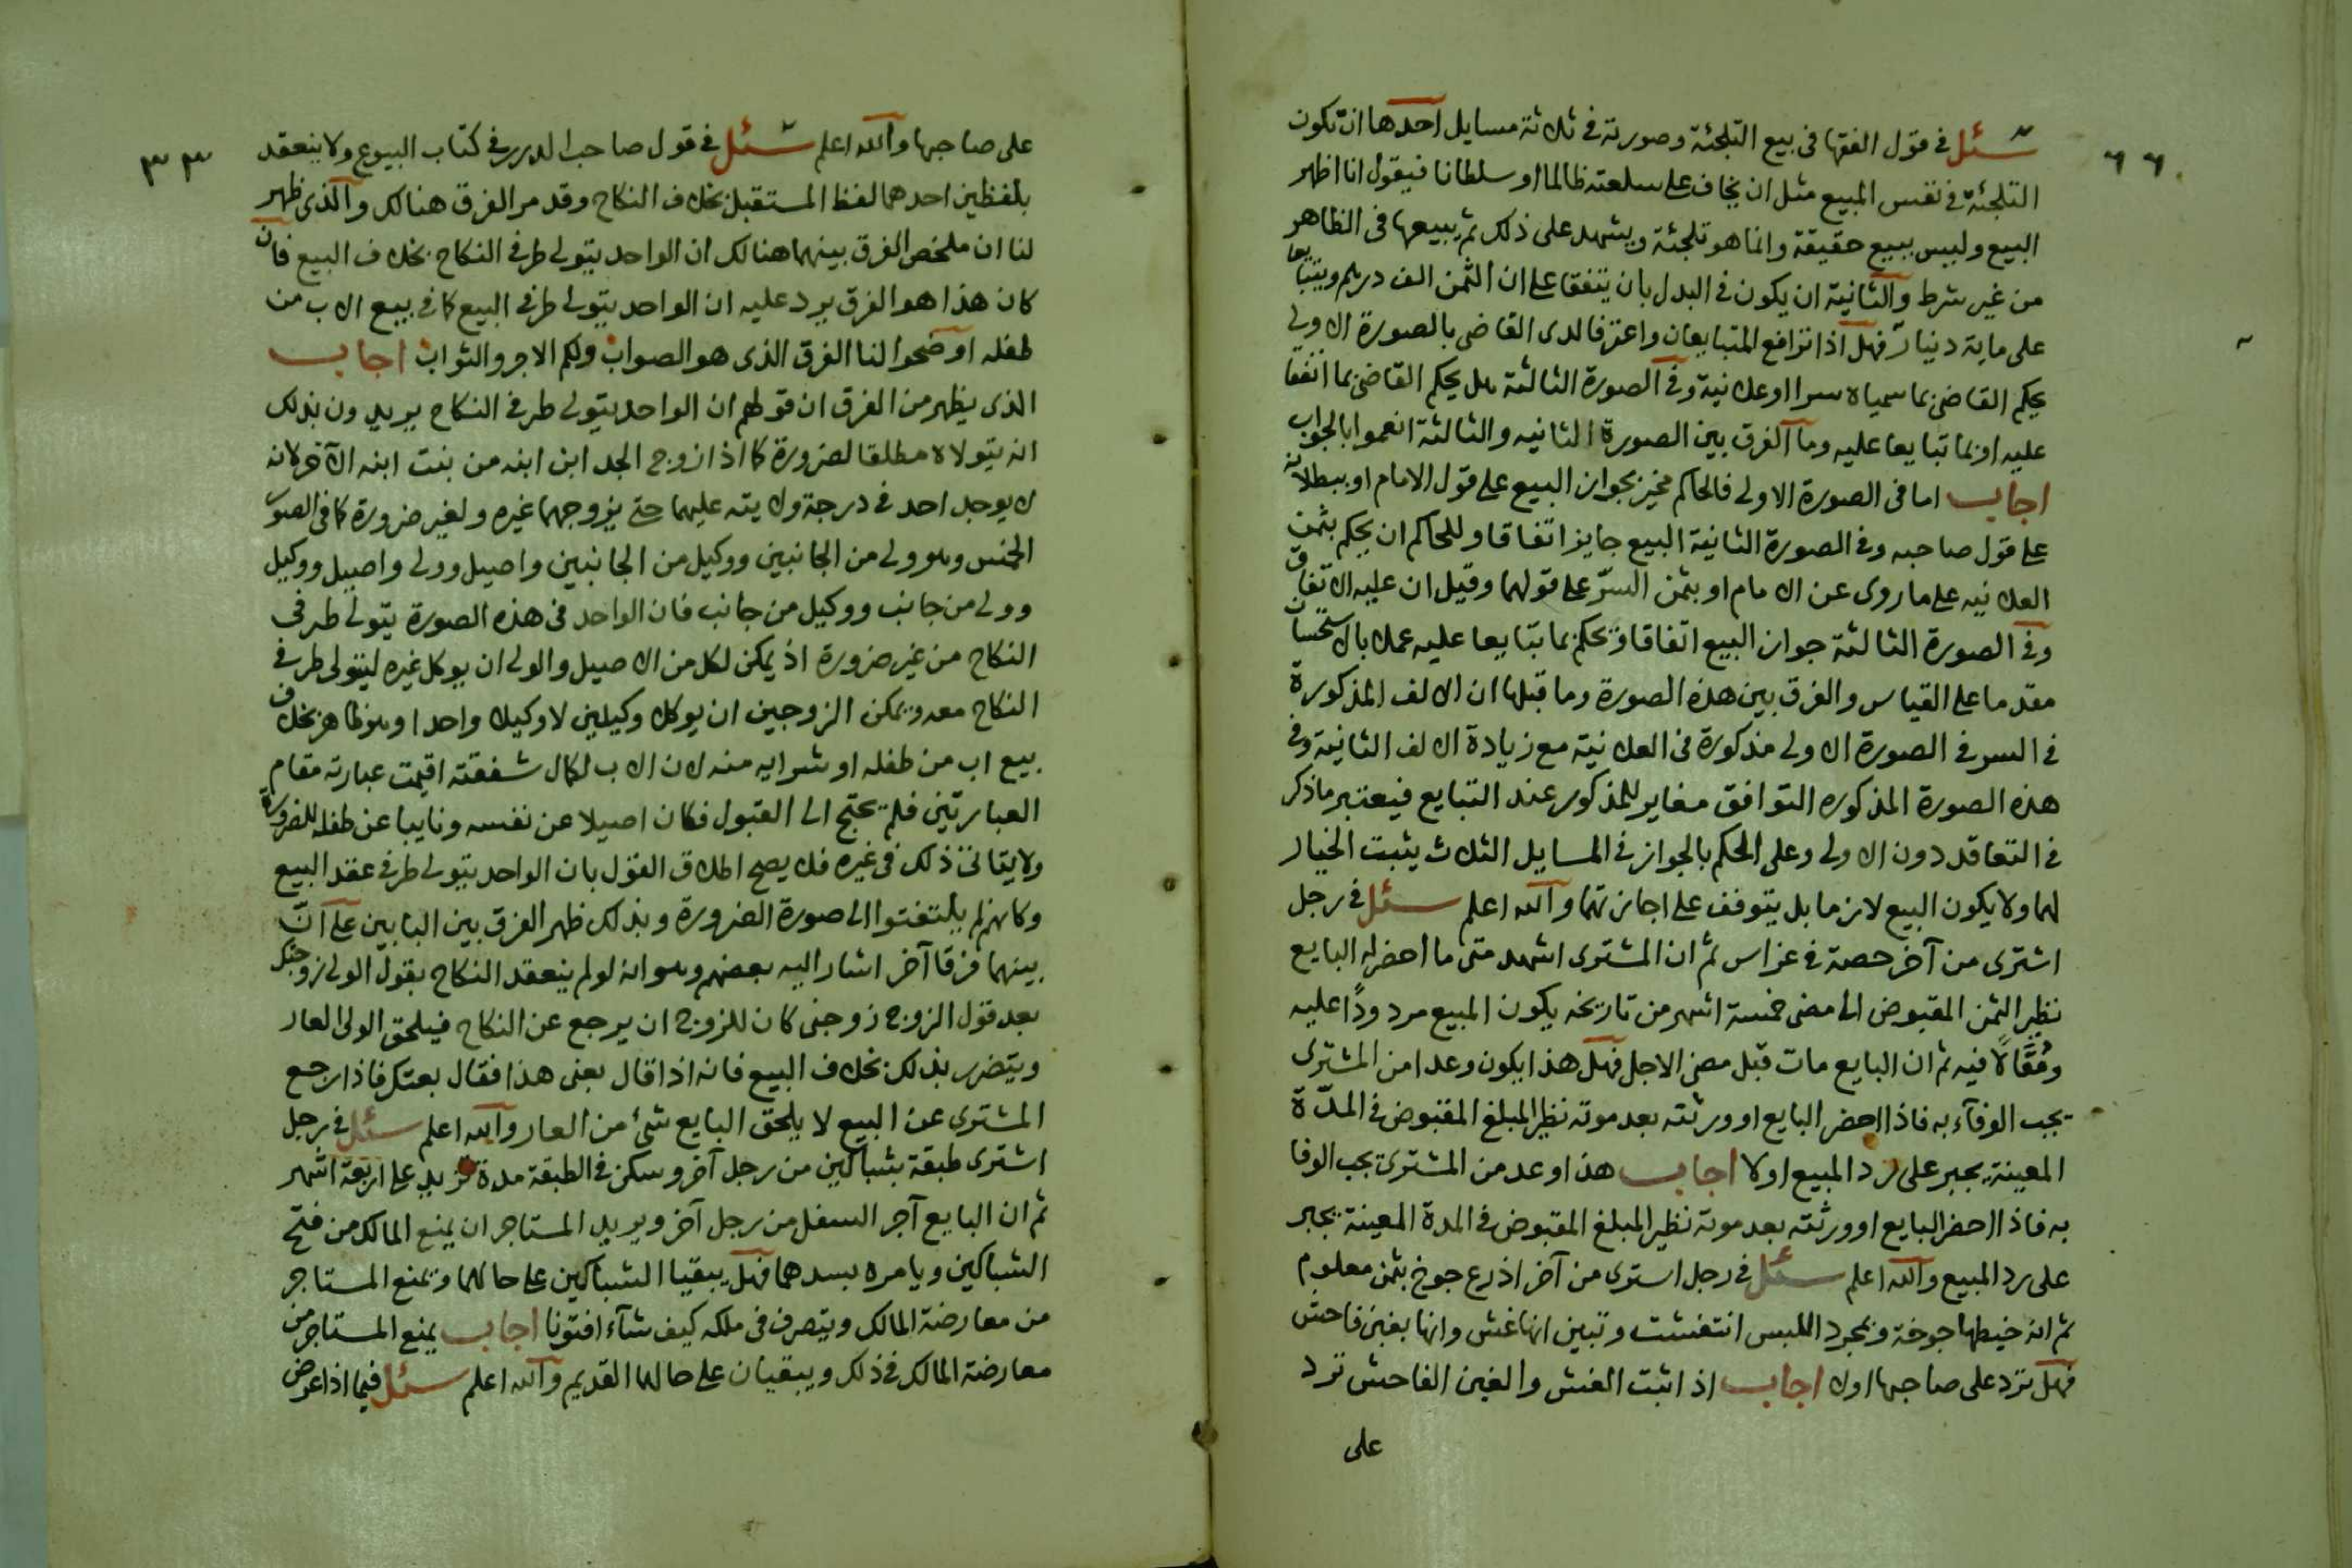 ٦٦
سئل في قول الفقها في بيع التلجئة وصورته في ثلاثة مسايل احدها ان تكون
التلجئة في نفس المبيع مثل ان يخاف على سلعته ظالما او سلطانا فيقول انا اظهر
البيع وليس ببيع حقيقة وانما هو تلجئة ويشهد على ذلك ثم يبيعها في الظاهر
من غير شرط والثانية ان يكون في البدل بان يتفقا على ان الثمن الف درهم ويتبايعا
على ماية دينار فهل اذا ترافع المتبايعان واعترفا لدى القاضي بالصورة الاولى
يحكم القاضي بما سمياه سرا او علانية وفي الصورة الثالثة هل يحكم القاضي بما اتفقا
عليه او بما تبايعا عليه وما الفرق بين الصورة الثانيه والثالثة انعموا بالجواب
اجاب اما في الصورة الاولى فالحاكم مخير بجواز البيع على قول الامام او ببطلانه
على قول صاحبه وفي الصورة الثانية البيع جايز اتفاقا وللحاكم ان يحكم بثمن
العلانيه على ما روى عن الامام او بثمن السر على قولهما وقيل ان عليه الاتفاق
وفي الصورة الثالثة جواز البيع اتفاقا ويحكم بما تبايعا عليه عملا بالاستحسان
مقدما على القياس والفرق بين هذه الصورة وما قبلها ان الالف المذكورة
في السر في الصورة الاولى مذكورة في العلانية مع زيادة الالف الثانية وفي
هذه الصورة المذكوره التوافق مغاير للمذكور عند التبايع فيعتبر ما ذكر
في التعاقد دون الاولى وعلى الحكم بالجواز في المسايل الثلاث يثبت الخيار
لهما ولا يكون البيع لازما بل يتوقف على اجازتهما والله اعلم سئل في رجل
اشترى من آخر حصة في غراس ثم ان المشترى اشهد متى ما احضر له البايع
نظير الثمن المقبوض الى مضى خمسة اشهر من تاريخه يكون المبيع مردودًا عليه
ومُقَالًا فيه ثم ان البايع مات قبل مضى الاجل فهل هذا يكون وعدا من المشترى
يجب الوفآء به فاذا احضر البايع او ورثته بعد موته نظير المبلغ المقبوض في المدّة
المعينة يجبر على رد المبيع اولا اجاب هذا وعد من المشترى يجب الوفا
به فاذا احضر البايع او ورثته بعد موته نظير المبلغ المقبوض في المدة المعينة يجبر
على رد المبيع والله اعلم سئل في رجل استرى من آخر اذرع جوخ بثمن معلوم
ثم انه خيطها جوخة وبمجرد اللبس انتفشت وتبين انها غش وانها بغبن فاحش
فهل ترد على صاحبها اولا اجاب اذا ثبت الغش والغبن الفاحش ترد
على
٣٣
على صاحبها والله اعلم سئل في قول صاحب الدرر في كتاب البيوع ولا ينعقد
بلفظين احدهما لفظ المستقبل بخلاف النكاح وقد مر الفرق هنالك والذى ظهر
لنا ان ملخص الفرق بينهما هنالك ان الواحد يتولى طرفي النكاح بخلاف البيع فان
كان هذا هو الفرق يرد عليه ان الواحد يتولى طرفي البيع كما في بيع الاب من
طفله اوضحوا لنا الفرق الذى هو الصواب ولكم الاجر والثواب اجاب
الذى يظهر من الفرق ان قولهم ان الواحد يتولى طرفي النكاح يريدون بذلك
انه يتولاه مطلقا لضرورة كما اذا زوج الجد ابن ابنه من بنت ابنه الآخر لانه
لا يوجد احد في درجة ولايته عليهما حتى يزوجهما غيره ولغير ضرورة كما في الصور
الخمس وهو ولى من الجانبين ووكيل من الجانبين واصيل وولى واصيل ووكيل
وولى من جانب ووكيل من جانب فان الواحد في هذه الصورة يتولى طرفي
النكاح من غير ضرورة اذ يمكن لكل من الاصيل والولى ان يوكل غيره ليتولى طرفي
النكاح معه ويمكن الزوجين ان يوكلا وكيلين لا وكيلا واحدا وهو ظاهر بخلاف
بيع اب من طفله او شرايه منه لان الاب لكمال شفقته اقيمت عبارته مقام
العبارتين فلم يحتج الى القبول فكان اصيلا عن نفسه ونايبا عن طفله للضرورة
ولا يتاتى ذلك في غيره فلا يصح اطلاق القول بان الواحد يتولى طرفي عقد البيع
وكانهم لم يلتفتوا الى صورة الضرورة وبذلك ظهر الفرق بين البابين على انّ
بينهما فرقا آخر اشار اليه بعضهم وهو انه لو لم ينعقد النكاح بقول الولى زوجتك
بعد قول الزوج زوجنى كان للزوج ان يرجع عن النكاح فيلحق الولى العار
ويتضرر بذلك بخلاف البيع فانه اذا قال بعنى هذا فقال بعتك فاذا رجع
المشترى عن البيع لا يلحق البايع شئ من العار والله اعلم سئل في رجل
اشترى طبقة بشباكين من رجل آخر وسكن في الطبقة مدة تزيد على اربعة اشهر
ثم ان البايع آجر السفل من رجل آخر ويريد المستاجر ان يمنع المالك من فتح
الشباكين ويامره بسدهما فهل يبقيا الشباكين على حالهما ويمنع المستاجر
من معارضة المالك ويتصرف في ملكه كيف شآء افتونا اجاب يمنع المستاجر من
معارضة المالك في ذلك ويبقيان على حالهما القديم والله اعلم سئل فيما اذا عرض